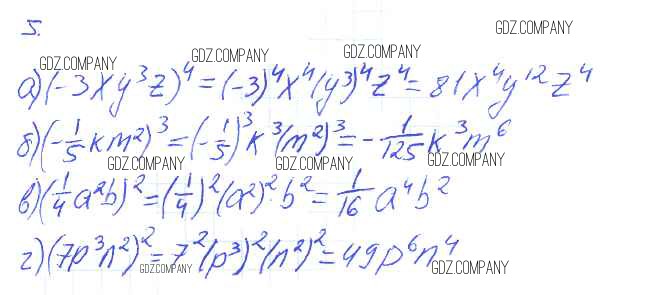 5.
GDZ.COMPANY
GDZ.COMPANY GDZ.COMPANY GDZ.COMPANY
а) (-3xy³z)⁴ = (-3)⁴x⁴(y³)⁴z⁴ = 81x⁴y¹²z⁴
б) (-1/5 km²)³ = (-1/5)³k³(m²)³ = -1/125 k³m⁶
GDZ.COMPANY GDZ.COMPANY GDZ.COMPANY
в) (1/4 a²b)² = (1/4)²(a²)²·b² = 1/16 a⁴b²
г) (7p³n²)² = 7²(p³)²(n²)² = 49p⁶n⁴
GDZ.COMPANY GDZ.COMPANY